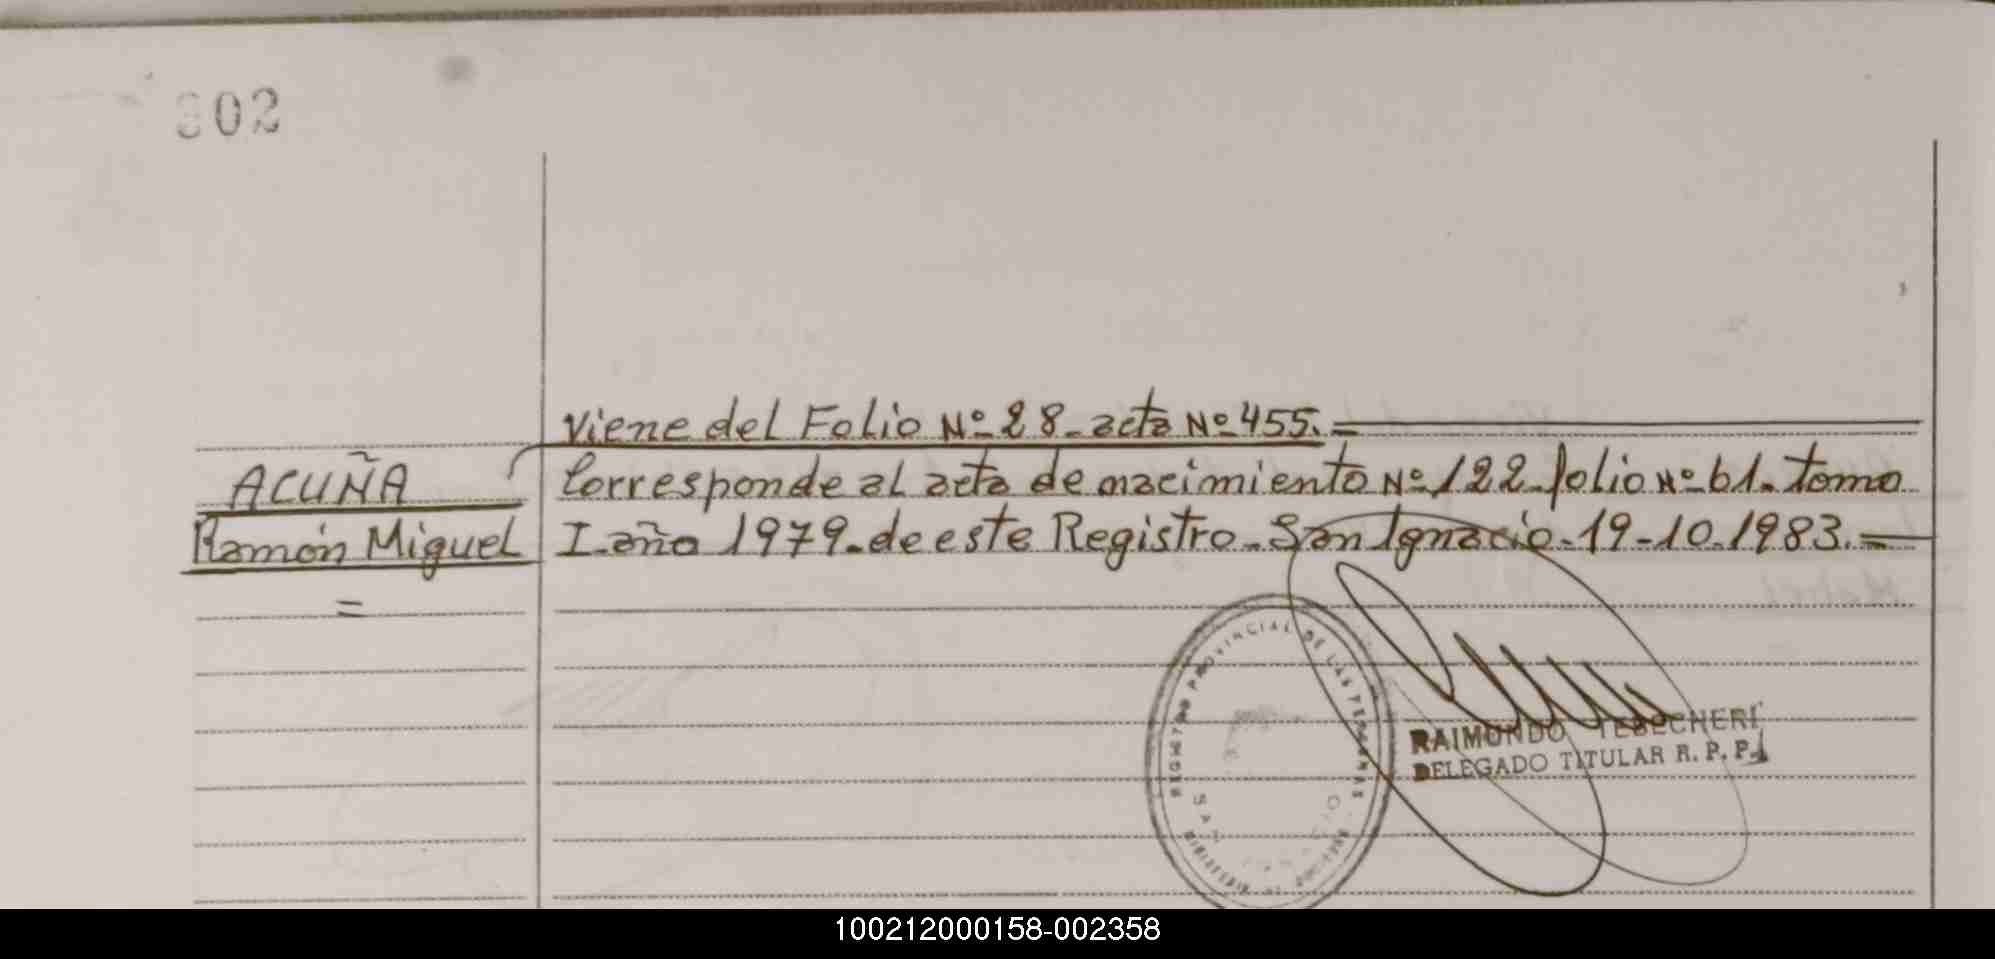 302
Viene del Folio Nº 28 - acta Nº 455. =
ACUÑA
Corresponde al acta de nacimiento Nº 122 - folio Nº 61. tomo
Ramón Miguel
I - año 1979 - de este Registro - San Ignacio - 19-10-1983. =
=
REGISTRO PROVINCIAL DE LAS PERSONAS
SAN
RAIMUNDO TEBECHERI
DELEGADO TITULAR R. P. P.
100212000158-002358